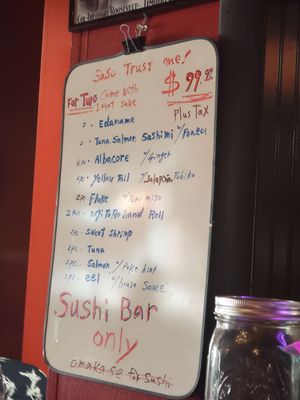 Sasu Trust me!
$99.95
Plus Tax
For Two Come with
1 Hot Sake
2. Edamame
2. Tuna. Salmon. Sashimi w/Ponzu
Albacore w/Ginger
Yellow Tail w/Jalapeño Tobiko
2pc. Fluke miso
Toro hand Roll
2pc. Sweet Shrimp
2pc. Tuna
2pc. Salmon
eel w/house Sauce
Sushi Bar
only
omakase for sushi